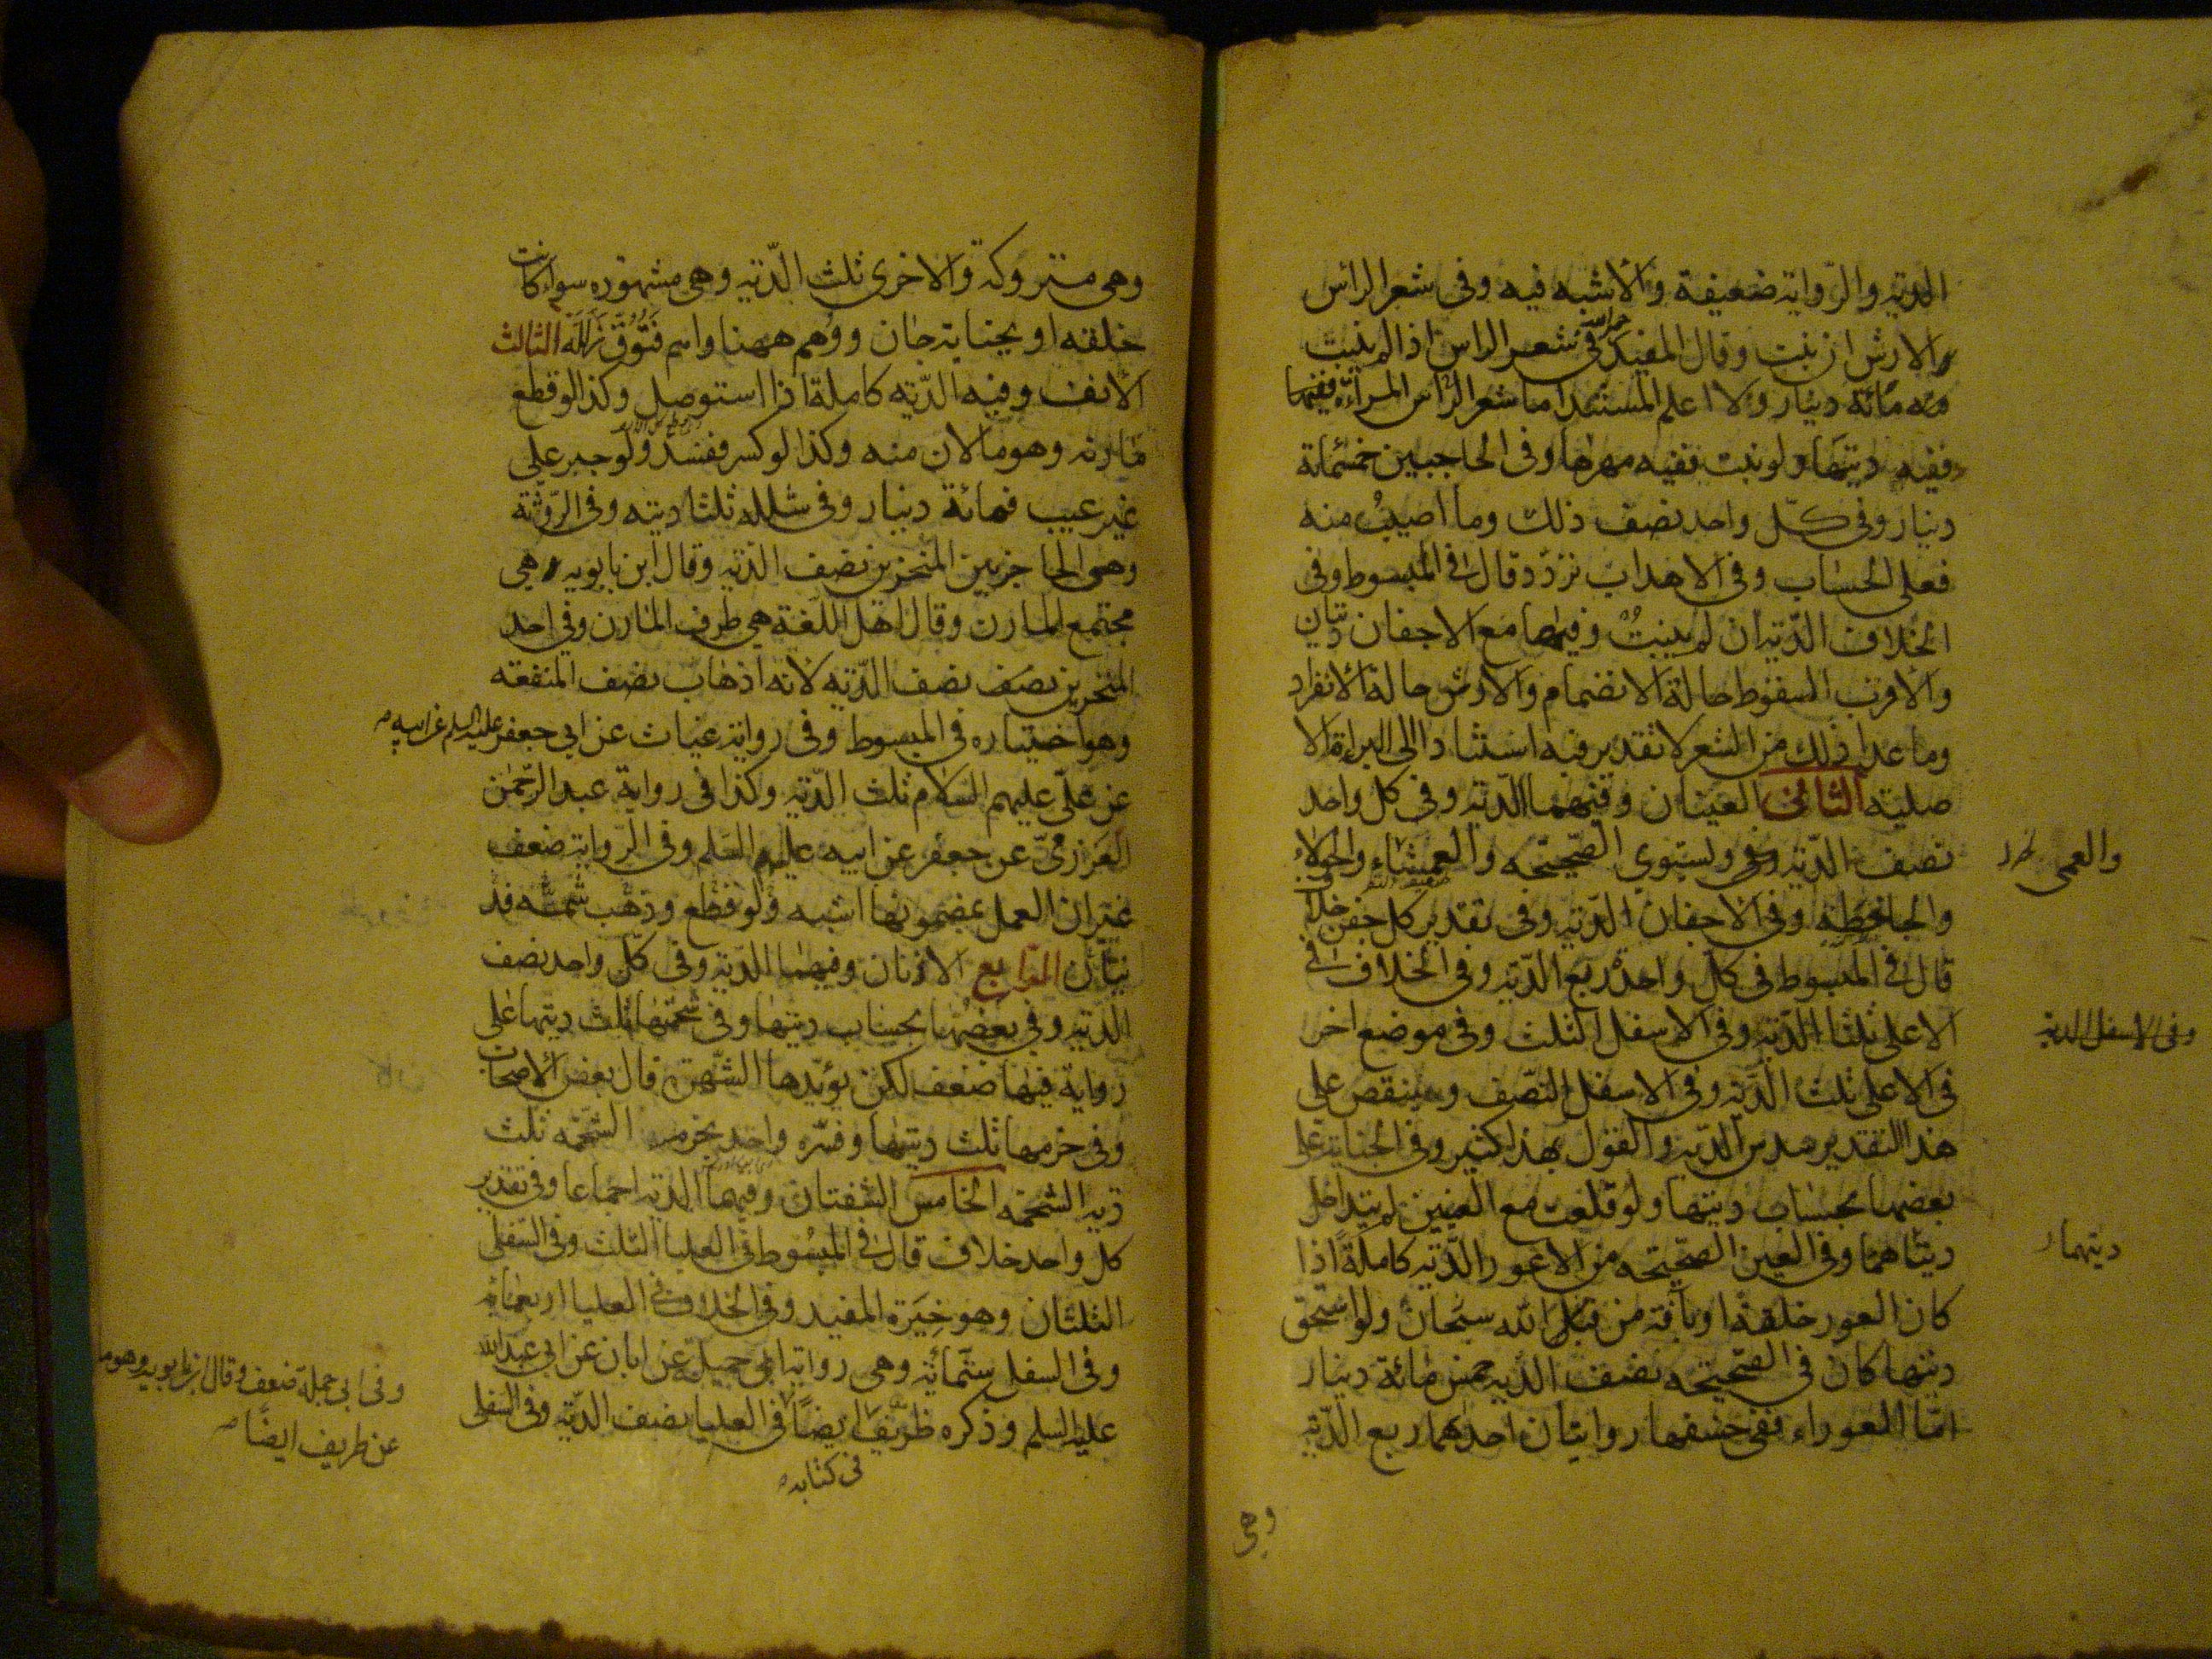 الدية والرواية ضعيفة والاشبه فيه وفى شعر الراس
والارش ان نبت وقال المفيد رحمه الله فى شعر الراس اذا لم ينبت
مائة دينار ولا اعلم المستند اما شعر الراس المراة ففيها
ففيه ديتها ولو نبت ففيه مهرها وفى الحاجبين خمسمائة
دينار وفى كل واحد نصف ذلك وما اصيب منه
فعلى الحساب وفى الاهداب تردد قال فى المبسوط وفى
الخلاف الدية ان لم ينبت وفيها مع الاجفان ديتان
والاقرب السقوط حالة الانضمام والارش حالة الانفراد
وما عدا ذلك من الشعر لا تقدير فيه استنادا الى البراة الا
صلية الثانى العينان وفيهما الدية وفى كل واحد
نصف الدية ويستوى الصحيحة والعمشاء والحولاء
والعمى
والجاحظة وفى الاجفان الدية وفى تقدير كل جفن خلاف
قال فى المبسوط فى كل واحد ربع الدية وفى الخلاف فى
الاعلى ثلثا الدية وفى الاسفل الثلث وفى موضع اخر
وفى الاسفل الدية
فى الاعلى ثلث الدية وفى الاسفل النصف وينقص على
هذا التقدير سدس الدية والقول بهذا كثير وفى الجناية على
بعضها بحساب ديتها ولو قلعت مع العينين لم يتداخل
ديتاهما وفى العين الصحيحة من الاعور الدية كاملة اذا
ديتهما
كان العور خلقة او بآفة من قبل الله سبحان ولو استحق
ديتها كان فى الصحيحة نصف الدية خمس مائة دينار
امّا العوراء ففى خسفها روايتان احدهما ربع الدية
وهى
وهى متروكة والاخرى ثلث الدية وهى مشهورة سواء كانت
خلقة او بجناية جان ووهم ههنا واهم فتوق زلله الثالث
الانف وفيه الدية كاملة اذا استوصل وكذا لو قطع
مارنه وهو ما لان منه وكذا لو كسر ففسد ولو جبر على
غير عيب فمائة دينار وفى شلله ثلثا ديته وفى الروثة
وهو الحاجز بين المنخرين نصف الدية وقال ابن بابويه هى
مجتمع المارن وقال اهل اللغة هى طرف المارن وفى احد
المنخرين نصف الدية لانه اذهاب نصف المنفعه
وهو اختياره فى المبسوط وفى رواية غياث عن ابى جعفر عليه السلم عن ابيه
عن على عليهم السلام ثلث الدية وكذا فى رواية عبد الرحمن
العرزمى عن جعفر عن ابيه عليهم السلم وفى الرواية ضعف
غير ان العمل بمضمونها اشبه ولو قطع وذهب شمه فد
يتان الرابع الاذنان وفيهما الدية وفى كل واحد نصف
الدية وفى بعضها بحساب ديتها وفى شحمتها ثلث ديتها على
رواية فيها ضعف لكن يؤيدها الشهرة قال بعض الاصحاب
وفى خرمها ثلث ديتها وفسره واحد بخرم الشحمة ثلث
دية الشحمة الخامس الشفتان وفيهما الدية اجماعا وفى تقدير
كل واحد خلاف قال فى المبسوط فى العليا الثلث وفى السفلى
الثلثان وهو خيرة المفيد وفى الخلاف فى العليا اربعمائة
وفى السفلى ستمائة وهى رواية ابى جميلة عن ابان عن ابى عبد الله
عليه السلم وذكره ظريف ايضاً فى العليا نصف الدية وفى السفلى
فى كتابه
وفى ابى جميلة ضعف وقال ابن بابويه وهو ما
عن ظريف ايضًا